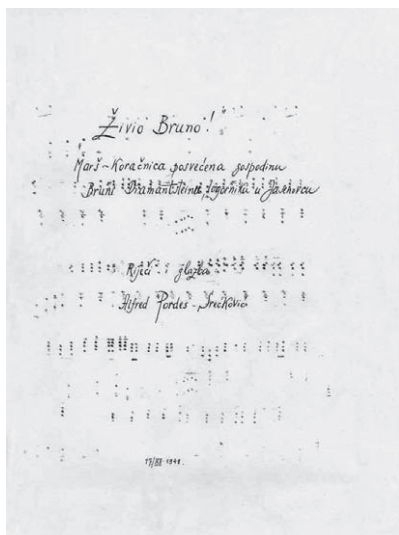 Živio Bruno!
Marš-Koračnica posvećena gospodinu
Bruni Diamantsteinu, logorniku u Jasenovcu
Riječi i glazba
Alfred Pordes-Srećković
17/XII 1941.